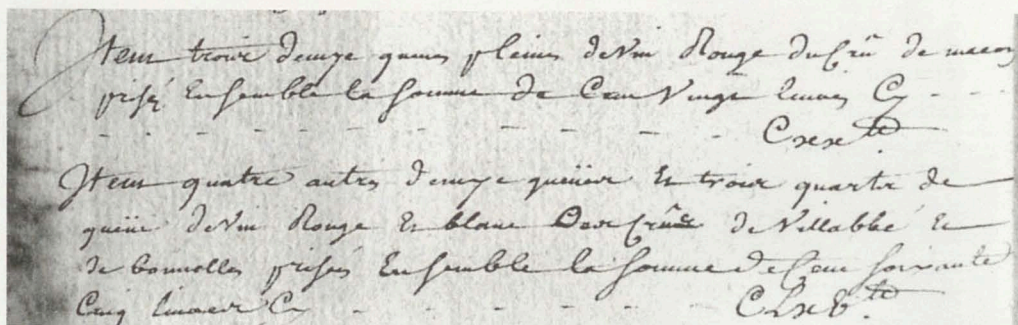 Item trois demye queues pleines de Vin Rouge du Crû de macon
prisé Ensemble la somme de Cent Vingt Livres Cy - - -
- - - - - - - - - - - Cxx lt
Item quatre autres demye queües Et trois quarts de
queüe de Vin Rouge Et blanc Des Crûs de Villabbé Et
de bonnolles prisés Ensemble la somme de Cent soixante
Cinq Livres Cy - - - - - - - CLxV lt